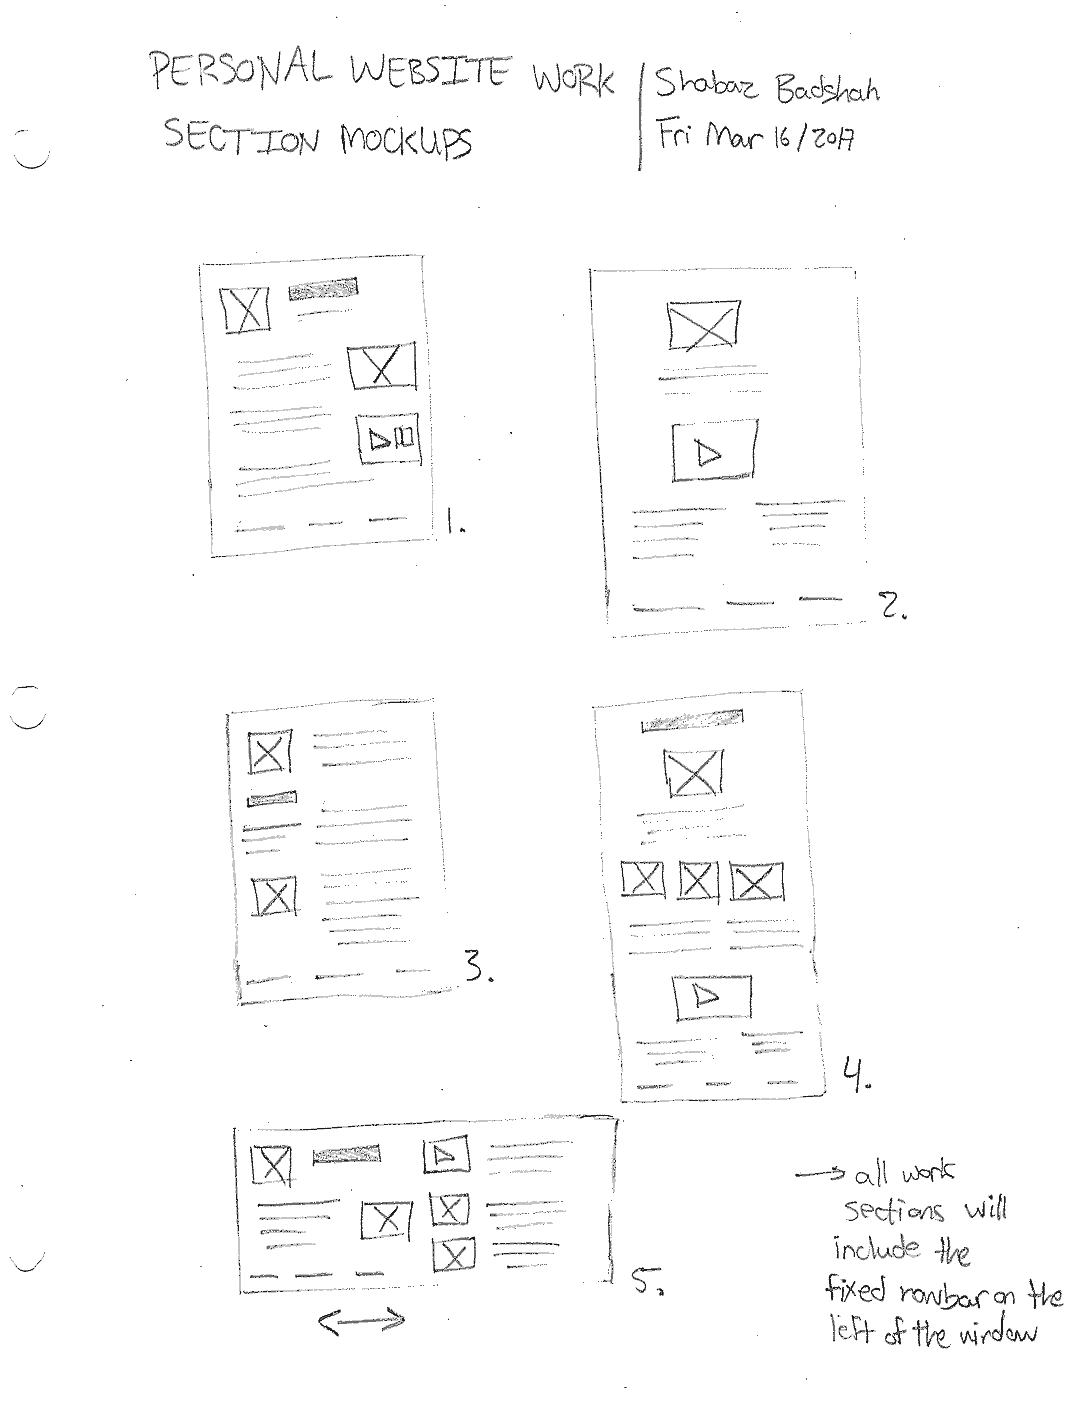 PERSONAL WEBSITE WORK
SECTION MOCKUPS
Shabaz Badshah
Fri Mar 16/2017
1.
2.
3.
4.
5.
→ all work
sections will
include the
fixed navbar on the
left of the window